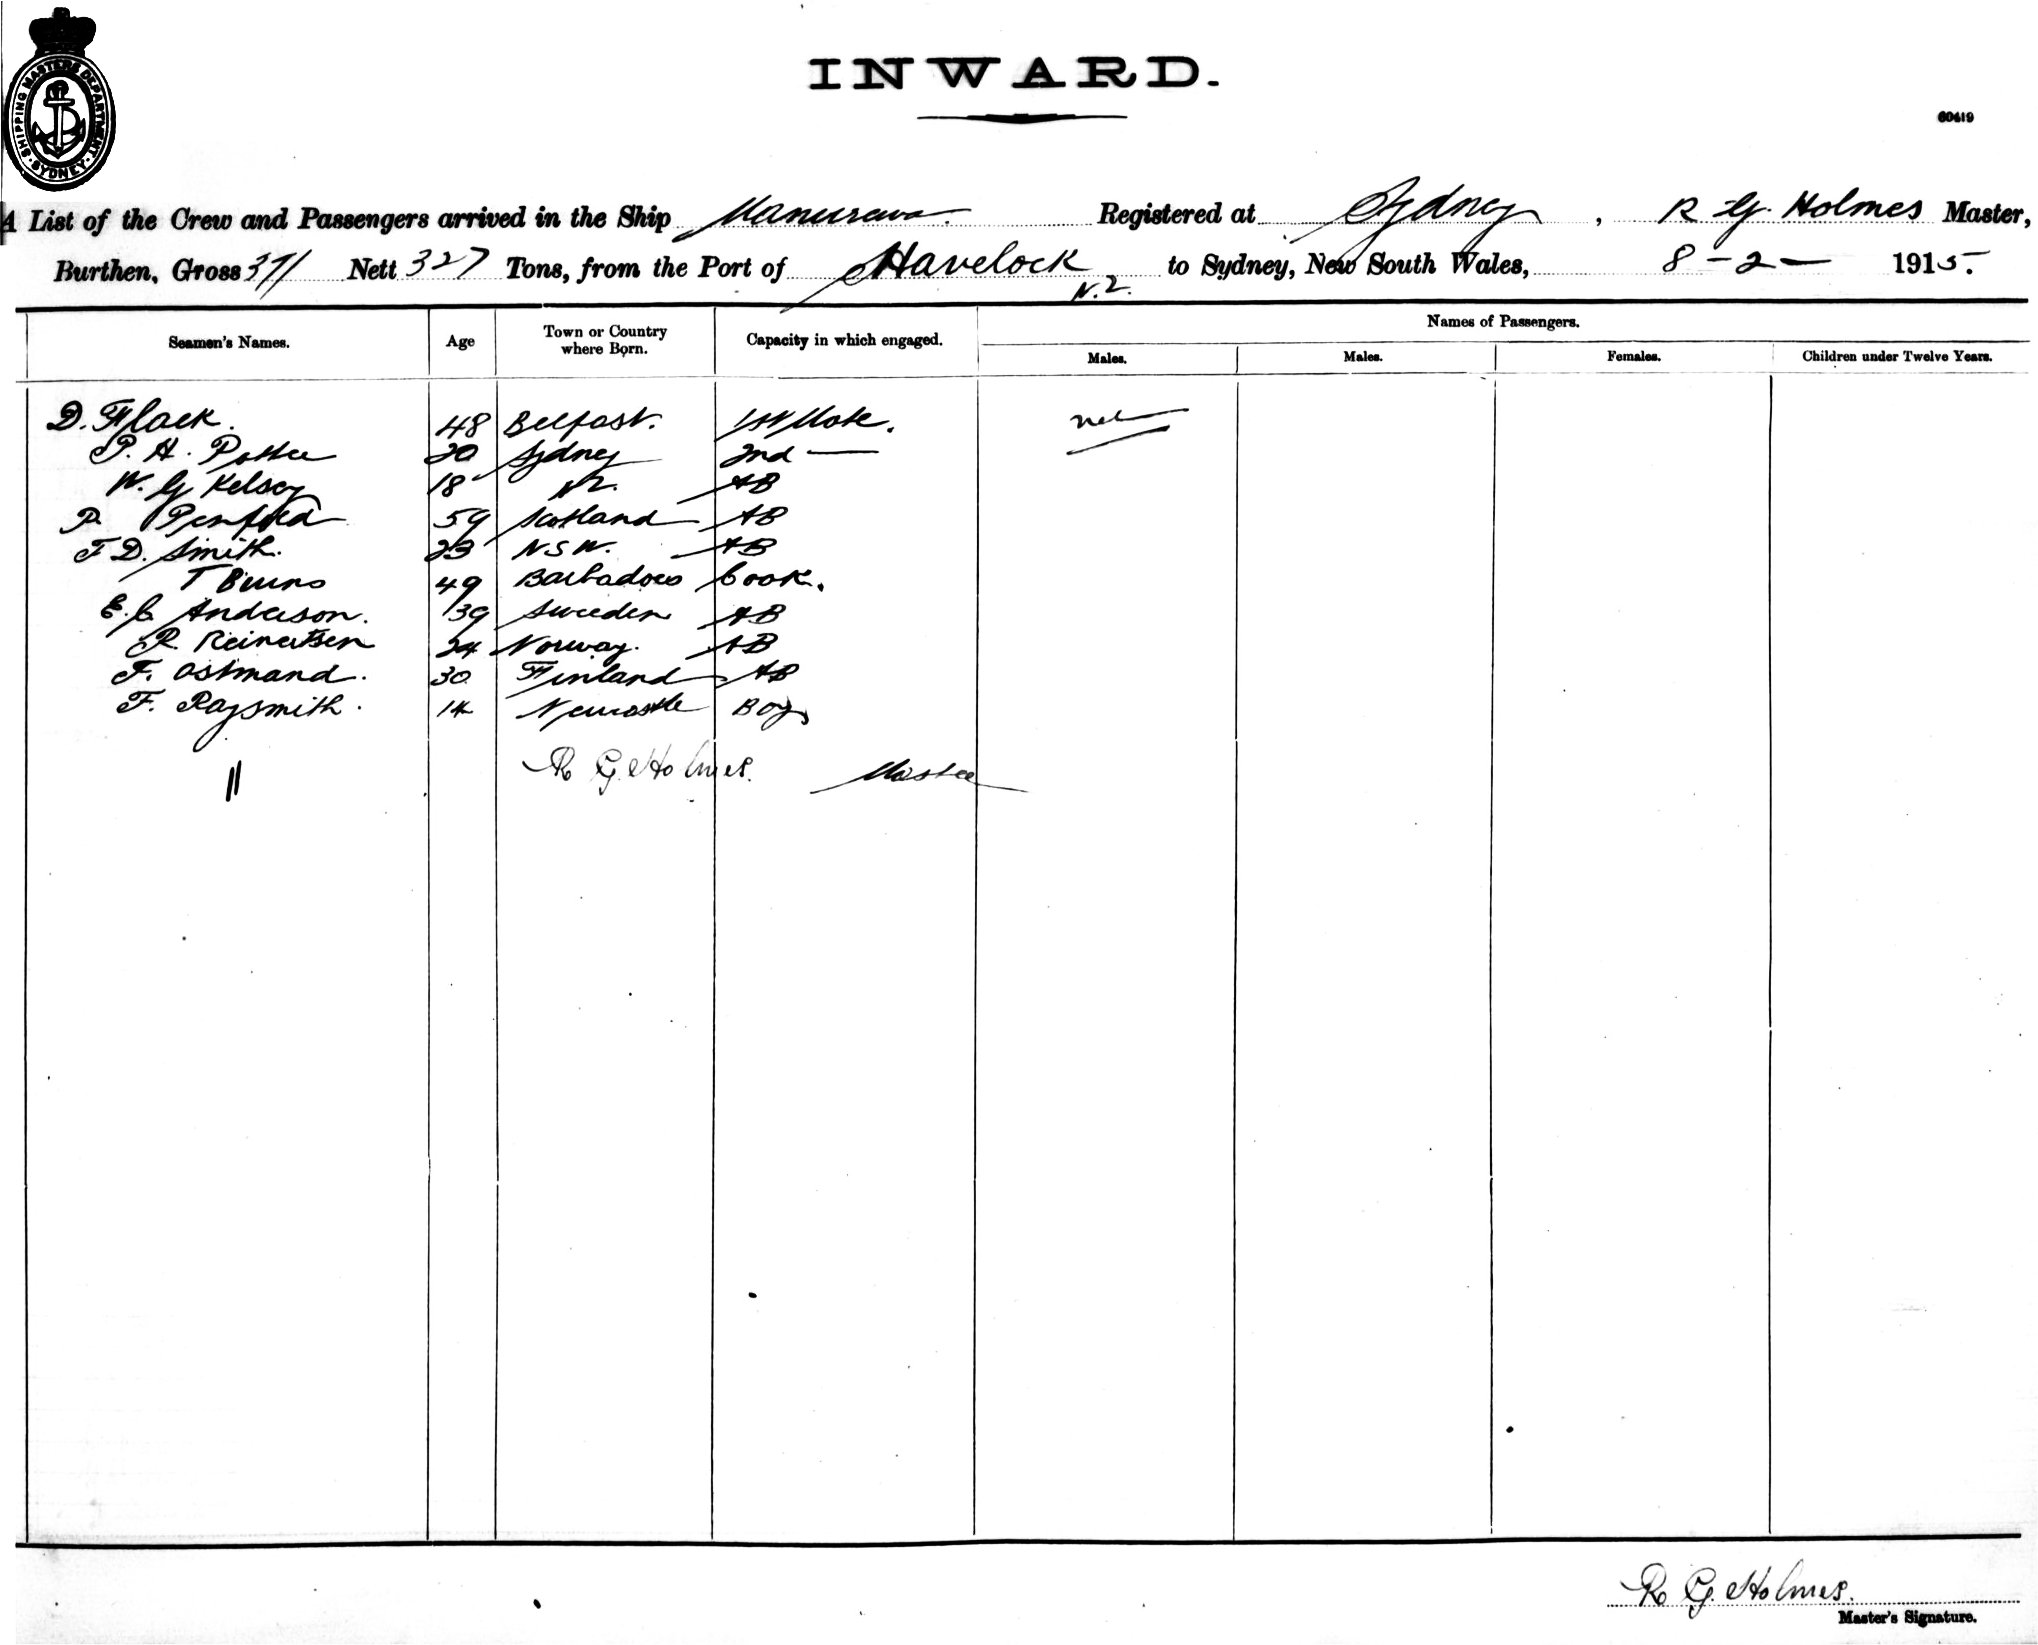 SHIPPING MASTERS DEPARTMENT · SYDNEY ·
INWARD.
60419
A List of the Crew and Passengers arrived in the Ship Manurewa. Registered at Sydney, R G. Holmes Master,
Burthen, Gross 371 Nett 327 Tons, from the Port of Havelock N.Z. to Sydney, New South Wales, 8 - 2 - 1915.
Seamen's Names. Age Town or Country where Born. Capacity in which engaged. Names of Passengers.
Males. Males. Females. Children under Twelve Years.
D. Flack. 48 Belfast. 1st Mate. nil
P. H. Potter 20 Sydney 2nd —
W. G Kelsey 18 NZ. AB
P. Penfold 59 Scotland AB
F D. Smith. 23 N S W. AB
T Burns 49 Barbadoes Cook.
E. C Anderson. 39 Sweeden AB
R. Reinertsen 24 Norway. AB
F. Ostmand. 30 Finland AB
F. Raysmith. 14 Newcastle Boy
11 R G. Holmes. Master
R G. Holmes.
Master's Signature.